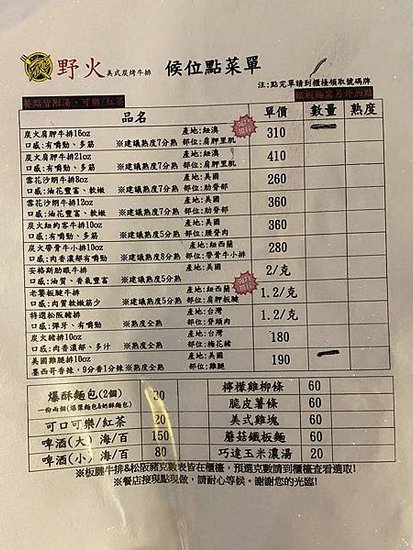 野火 美式炭烤牛排 候位點菜單
注:點完單請到櫃檯領取號碼牌
餐點皆附湯、可樂/紅茶
品名 單價 數量 熟度
炭火肩胛牛排16oz 產地:紐澳
口感:有嚼勁、多筋 ※建議熟度7分熟 部位:肩胛里肌 310
炭火肩胛牛排21oz 產地:紐澳
口感:有嚼勁、多筋 ※建議熟度7分熟 部位:肩胛里肌 410
雪花沙朗牛排8oz 產地:美國
口感:油花豐富、軟嫩 ※建議熟度7分熟 部位:肋脊部 260
雪花沙朗牛排12oz 產地:美國
口感:油花豐富、軟嫩 ※建議熟度7分熟 部位:肋脊部 360
炭火紐約客牛排10oz 產地:美國
口感:有嚼勁、多筋 ※建議熟度5分熟 部位:腰脊肉 360
炭火帶骨牛小排10oz 產地:紐西蘭
口感:肉香濃郁有嚼勁 ※建議熟度7分熟 部位:帶骨牛小排 280
安格斯肋眼牛排 產地:美國
口感:油質、香氣豐富 ※建議熟度5分熟 2/克
老饕板腱牛排 產地:紐西蘭
口感:肉質軟嫩筋少 ※建議熟度5分熟 部位:肩胛板腱 1.2/克
特選松阪豬排 產地:台灣
口感:彈牙、有嚼勁 ※熟度全熟 部位:脊頭肉 1.2/克
炭火豬排10oz 產地:台灣
口感:肉香濃郁、多汁 ※熟度全熟 部位:梅花豬 180
美國雞腿排10oz 產地:美國
墨西哥香辣，9分香1分辣 ※熟度全熟 部位:雞腿 190
爆酥麵包(2個) 30 檸檬雞柳條 60
一份兩個(爆漿麵包&奶酥麵包) 脆皮薯條 60
可口可樂/紅茶 20 美式雞塊 60
啤酒(大) 海/百 150 蘑菇鐵板麵 60
啤酒(小) 海/百 80 巧達玉米濃湯 20
※板腱牛排&松阪豬克數表皆在櫃檯，預選克數請到櫃檯查看選取!
※餐店接現點現做，請耐心等候。謝謝您的光臨!